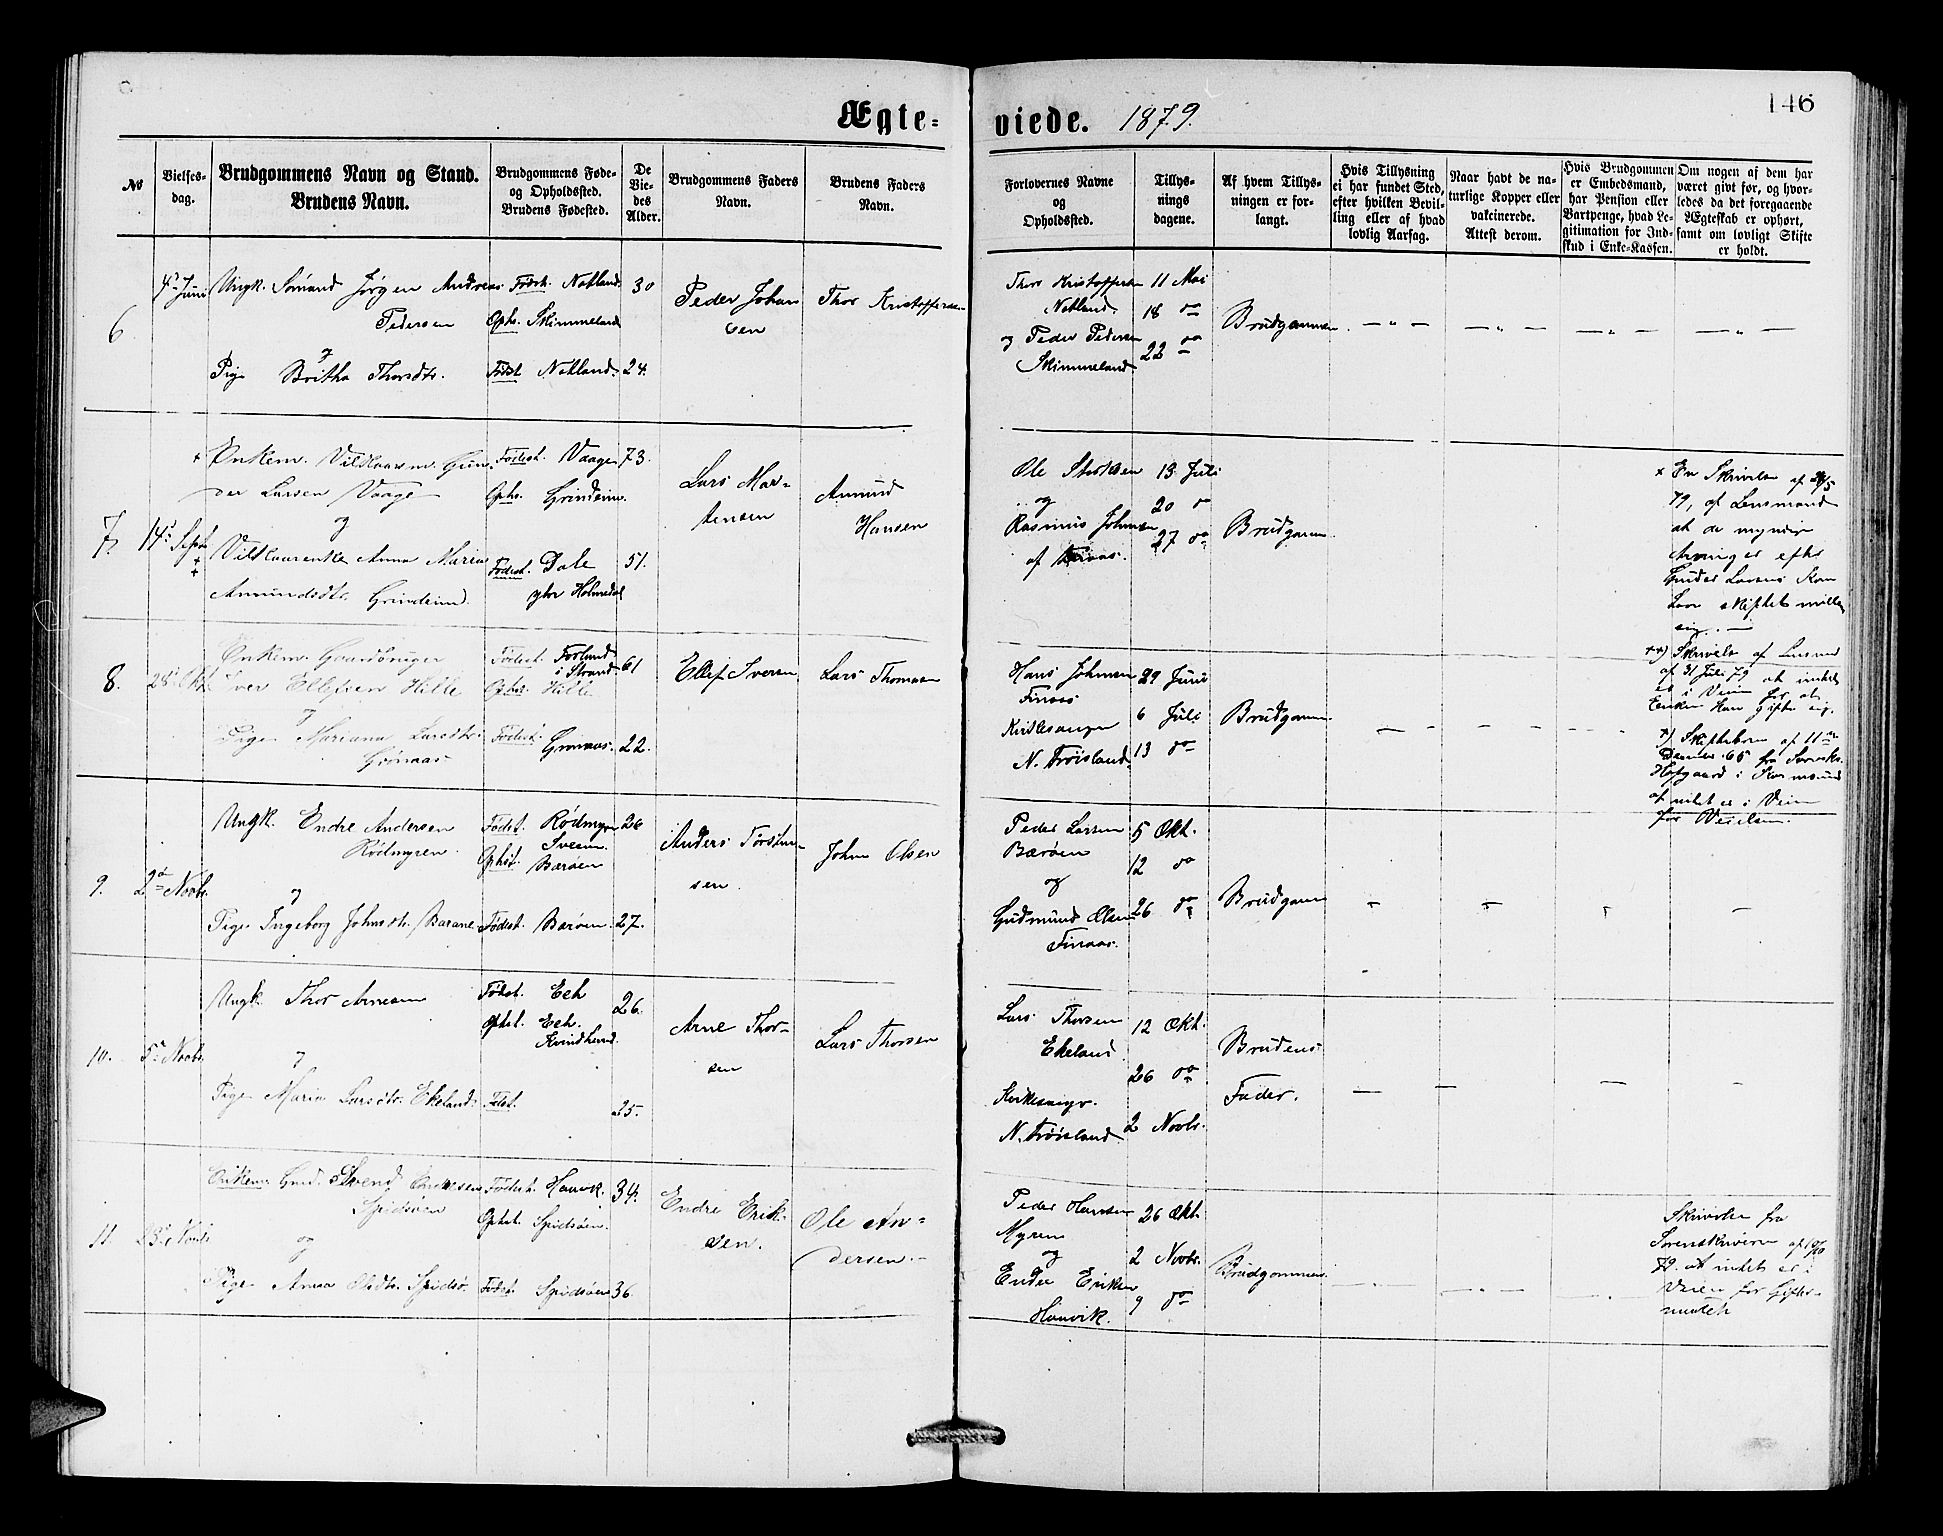 146
Ægte-
viede. 1879.
No
Vielses-
dag.
Brudgommens Navn og Stand.
Brudens Navn.
Brudgommens Føde-
og Opholdssted.
Brudens Fødested.
De
Vie-
des
Alder.
Brudgommens Faders
Navn.
Brudens Faders
Navn.
Forlovernes Navne
og
Opholdssted.
Tillys-
nings
dagene.
Af hvem Tillys-
ningen er for-
langt.
Hvis Tillysning
ei har fundet Sted,
efter hvilken Bevil-
ling eller af hvad
lovlig Aarsag.
Naar havt de na-
turlige Kopper eller
vakcinerede.
Attest derom.
Hvis Brudgommen
er Embedsmand,
har Pension eller
Vartpenge, hvad Le-
gitimation for Ind-
skud i Enke-Kassen.
Om nogen af dem har
været gift før, og hvor-
ledes da det foregaaende
Ægteskab er ophørt,
samt om lovligt Skifte
er holdt.
6
4 Juni
Ungk. Sømand Jørgen Andreas
Pedersen
og
Pige Britha Thorsdtr.
Fødst. Nøtland
Ophs. Skimmeland
Fødst Nøtland
30
24.
Peder Johan
sen
Thor Kristoffersen
Thor Kristoffersen
Nøtland
og Peder Pedersen
Skimmeland
11 Mai
18 do
22 do
Brudgommen
7.
14 Septr
Enkem. Vilkaarsm. Gun
der Larsen Vaage
og
Vilkaarenke Anna Maria
Amundsdtr. Grindeim
Fødest. Vaage
Ophs. Grindeim.
Fødest. Dale
ytre Holmedal
73.
51.
Lars Mor-
tensen
Amund
Hansen
Ole
og
Rasmus Johnsen
af Finaas.
13 Juli
20 do
27 do
Brudgommen
x En Skrivelse af
79, af Lensmand
at de myndige
Arvinger efter
Gunder Larsens Kone
Lover skiftet mellem
sig.
8.
28 Okt.
Enkem. Gaardbruger
Iver Ellefsen Hille
og
Pige Mariana Larsdtr.
Gønaas
Fødest. Forland
i Strand
Ophs. Hille
Fødest. Gønaas.
61
22.
Ellef Iversen
Lars Thomsen
Hans Johnsen
Finaas
Kirkesanger
N. Trøisland.
29 Juni
6 Juli
13 do
Brudgommen
xx) Skrivelse af Lensmd
af 31 Juli 79 at intet
er i Veien for at
Enken kan gifte sig.
x) Skiftebrev af 11te
December 65 fra Sorensk.
Hofgaard i Karmsund
at intet er i Veien
for Vielsen.
9.
2 Novbr.
Ungk. Endre Andersen
Rødmyren.
og
Pige Ingeborg Johnsdtr. Barane
Fødst. Rødmyr
Sveen
Ophst. Barøen
Fødest. Barøen
26
27.
Anders Torsten-
sen.
John Olsen
Peder Larsen
Bærøen
og
Gudmund Olsen
Finaas.
5 Okt.
12 do
26 do
Brudgommen
10.
5 Novbr.
Ungk. Thor Arnesen
og
Pige Maria Larsdtr. Ekeland
Fødst. Eeh
Ophst. Eeh.
Kvindherred.
Fødst.
26.
25.
Arne Thor-
sen
Lars Thorsen
Lars Thorsen
Ekeland.
Kirkesanger.
N. Trøisland.
12 Okt.
26 do
2 Novbr.
Brudens
Fader.
11.
23 Novbr
Enkem. Svend Endresen
Spidsøen
og
Pige Anna Olsdtr. Spidsø.
Fødest. Haavik.
Ophst. Spidsøen.
Fødst. Spidsøen
34.
36.
Endre Erik-
sen.
Ole An-
dersen.
Peder Hansen
Myren
og
Endre Eriksen
Haavik.
26 Okt.
2 Novbr.
9 do
Brudgommen
Skrivelse fra
Sorenskriveren af
79. at intet er i
Veien for Gifte-